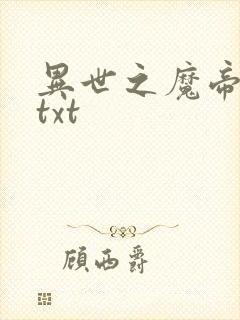 異世之魔帝
txt
顾西爵